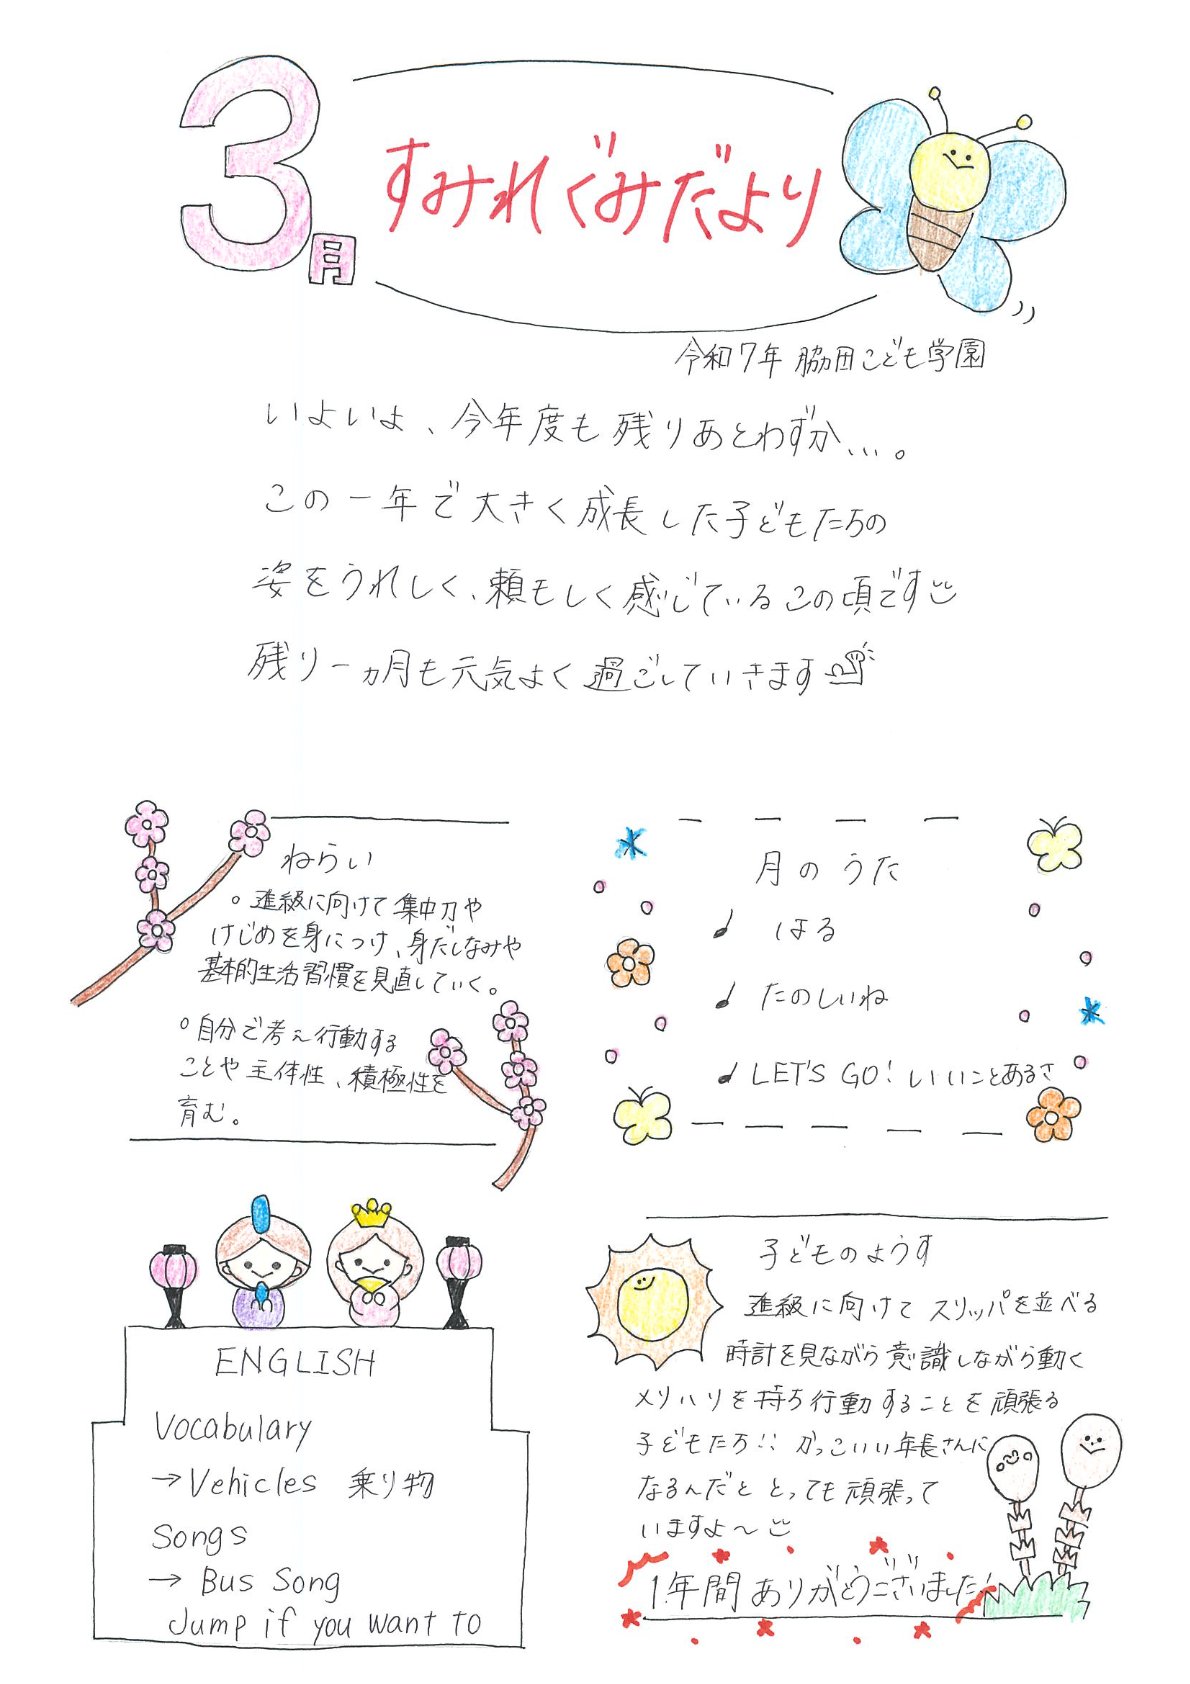 3月
すみれぐみだより
令和7年 脇田こども学園
いよいよ、今年度も残りあとわずか...。
この一年で大きく成長した子どもたちの
姿をうれしく、頼もしく感じているこの頃です
残り一ヵ月も元気よく過ごしていきます
ねらい
○ 進級に向けて集中力や
けじめを身につけ、身だしなみや
基本的生活習慣を見直していく。
○自分で考え行動する
ことや主体性、積極性を
育む。
月のうた
♩ はる
♩ たのしいね
♩ LET'S GO! いいことあるさ
ENGLISH
Vocabulary
→Vehicles 乗り物
Songs
→ Bus Song
Jump if you want to
子どものようす
進級に向けてスリッパを並べる
時計を見ながら意識しながら動く
メリハリを持ち行動することを頑張る
子どもたち!! かっこいい年長さんに
なるんだととっても頑張って
いますよ〜
1年間ありがとうございました!